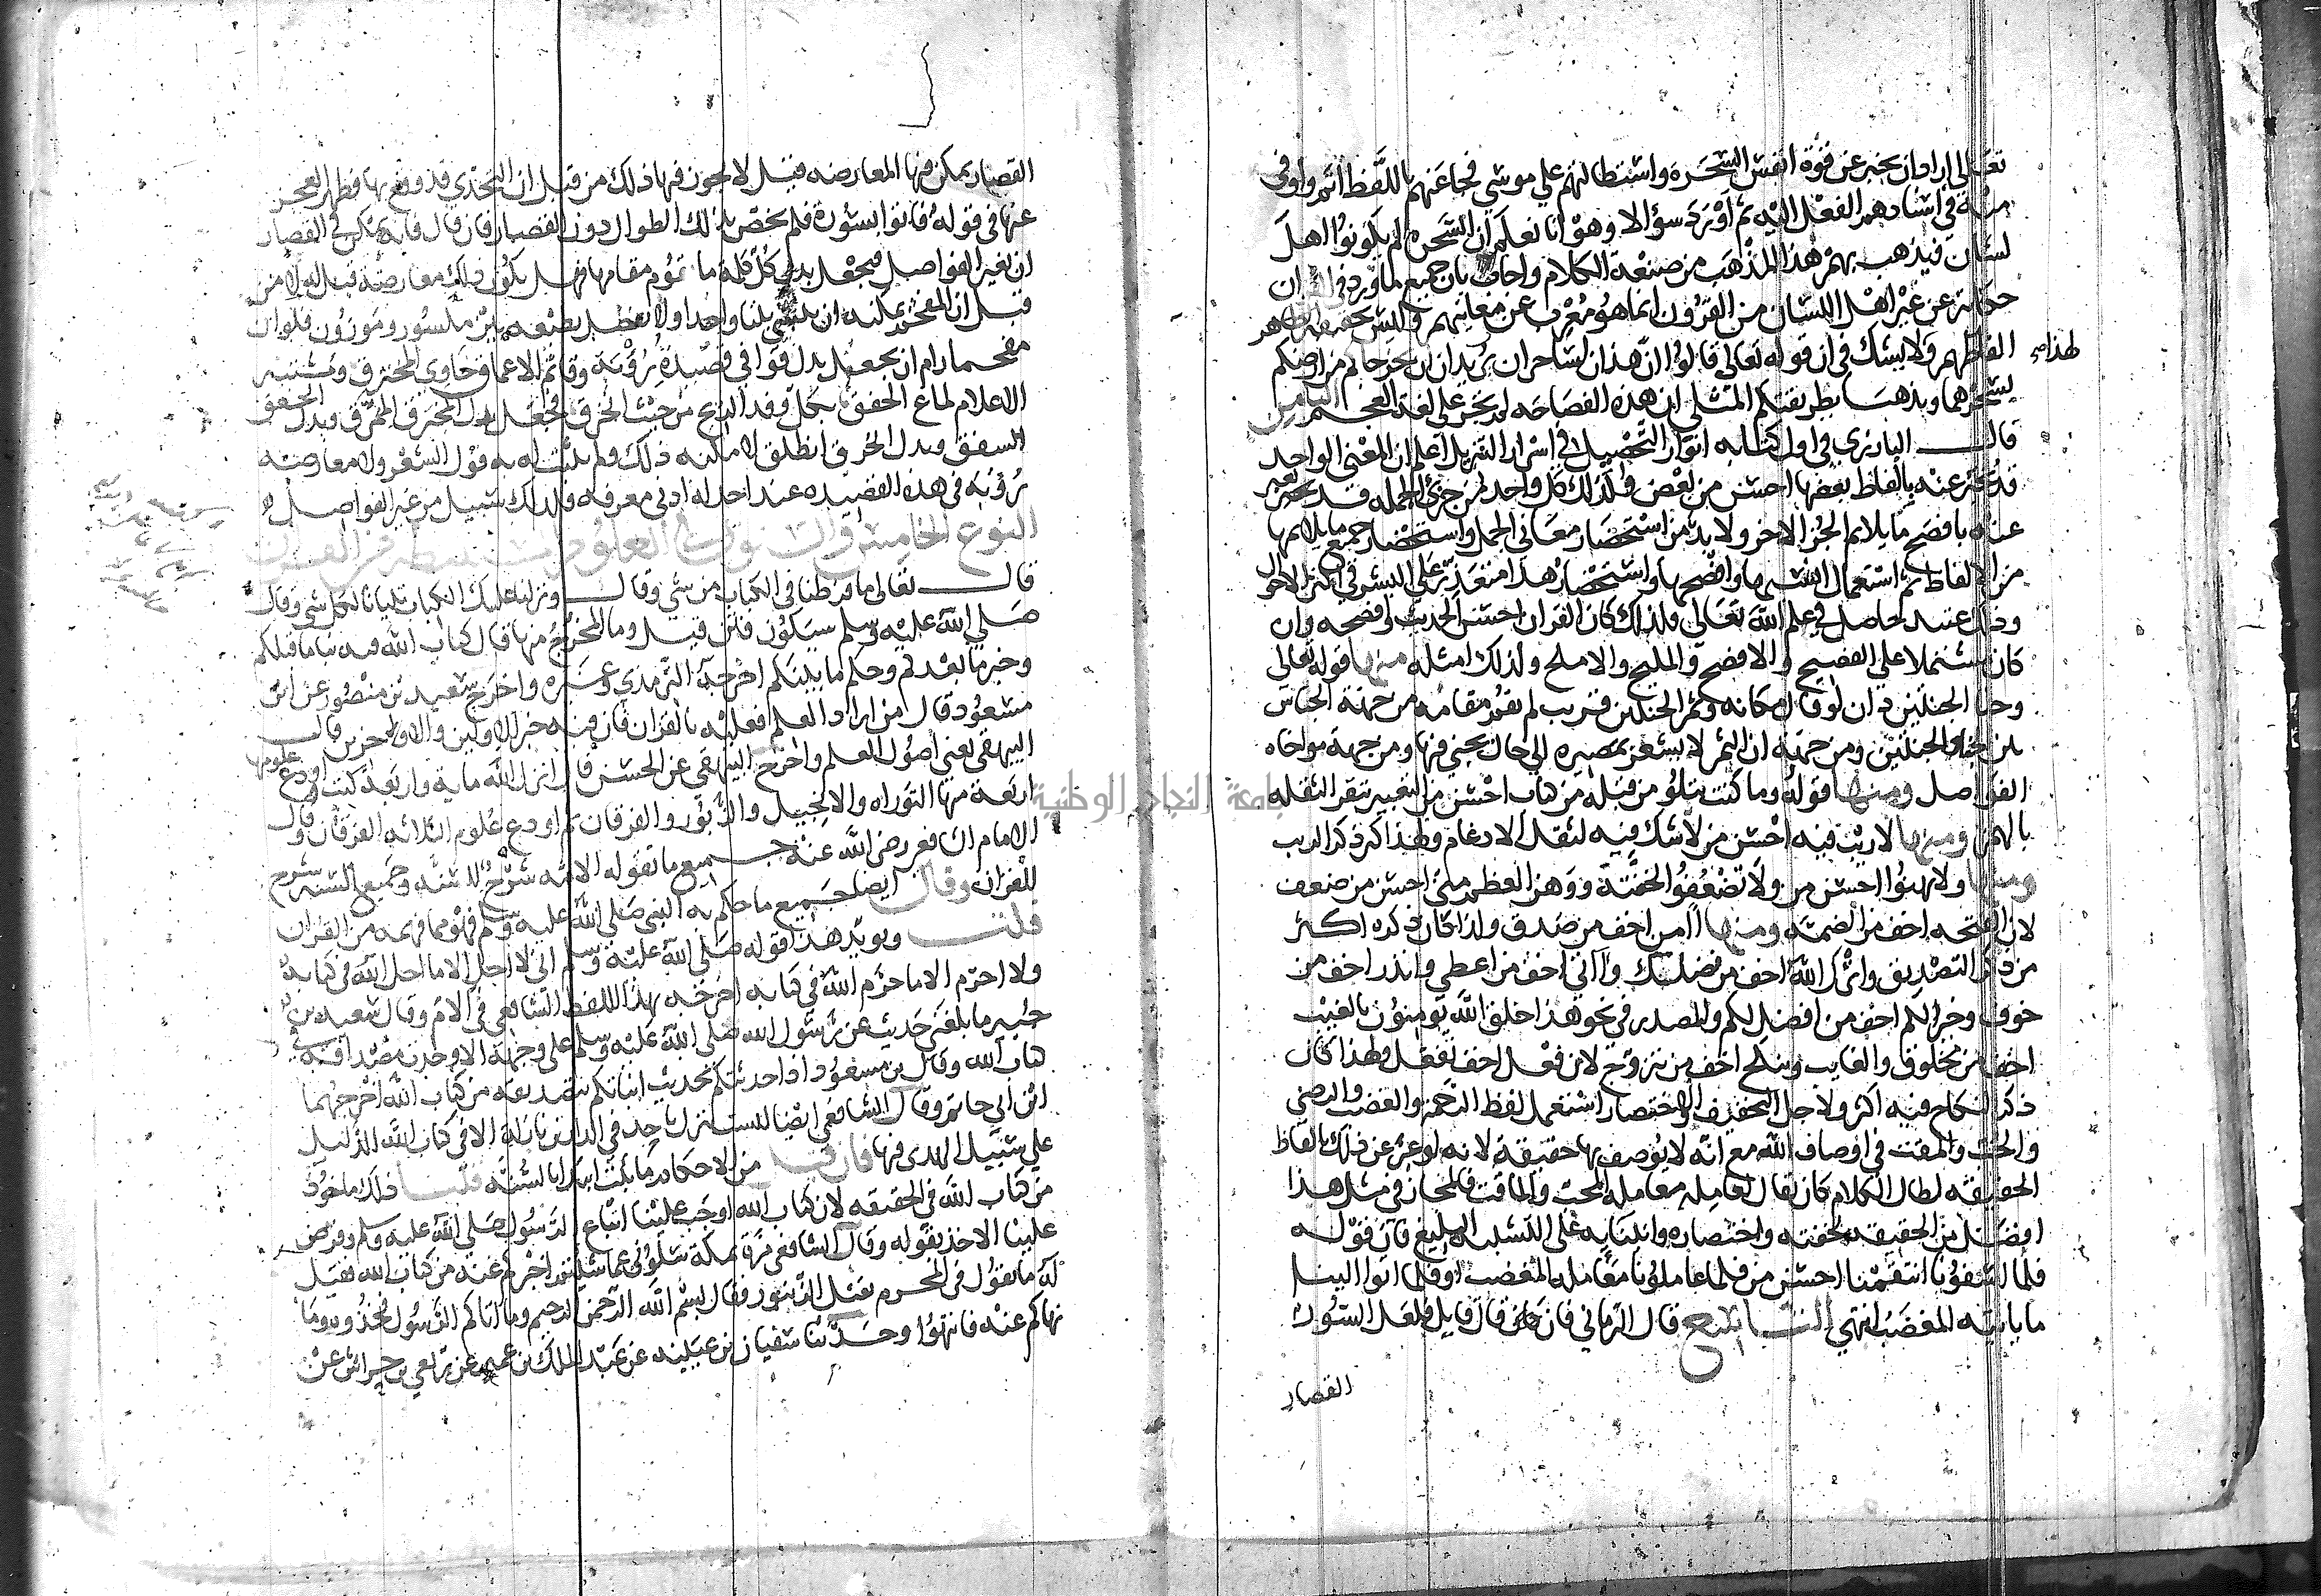 تعالى اراد ان يخبر عن قوة انفس السحرة واستطالتهم على موسى فجاعنهم باللفظ اتم واوفى
منه في اسنادهم الفعل اليه ثم اورد سؤالا وهو انا نعلم ان السحرة لم يكونوا اهل
لسان فيذهب بهم هذا المذهب من صنعة الكلام واجاب بان جميع ما ورد في القران
حكاية عن غير اهل اللسان من القرون انما هو معرب عن معانيهم وليس بحقيقة
الفاظهم ولا يشك في ان قوله تعالى قالوا ان هذان لساحران يريدان ان يخرجاكم من ارضكم
لهذا
بسحرهما ويذهبا بطريقتكم المثلى ان هذه الفصاحه لم تجر على لغة العجم الثامن
قال البارزي في اول كتابه انوار التحصيل في اسرار التنزيل اعلم ان المعنى الواحد
قد يخبر عنه بالفاظ بعضها احسن من بعض وكذلك كل واحد من جزئي الجمله قد يعبر
عنه بافصح ما يلايم الجز الاخر ولا بد من استحضار معاني الجمل واستحضار جميع ما يلايمها
من الالفاظ ثم استعمال انسبها وافصحها واستحضار هذا متعذر على البشر في اكثر الاحوال
وذلك عتيد حاصل في علم الله تعالى ولذلك كان القران احسن الحديث وافصحه وان
كان مشتملا على الفصيح والافصح والمليح والاملح ولذلك امثله منها قوله تعالى
وجنا الجنتين دان لو قال مكانه وثمر الجنتين قريب لم يقم مقامه من جهة الجناس
بين جنا والجنتين ومن جهة ان الثمر لا يشعر بمصيره الى حال يجني فيها ومن جهة مواخاه
الفواصل ومنها قوله وما كنت تتلو من قبله من كتاب احسن من التعبير بتقرا لثقله
بالهمز ومنها لا ريب فيه احسن من لا شك فيه لثقل الادغام ولهذا كثر ذكر الريب
ومنها ولا تهنوا احسن من ولا تضعفوا لخفته ووهن العظم مني احسن من ضعف
لان الفتحه اخف من الضمة ومنها آمن اخف من صدق ولذا كان ذكره اكثر
من ذكر التصديق واثرك الله اخف من فضلك وآتى اخف من اعطى وانذر اخف من
خوف وخير لكم اخف من افضل لكم والمصدر في نحو هذا خلق الله يومنون بالغيب
اخف من مخلوق والغايب وينكح اخف من تزوج لان فعل اخف تفعل ولهذا كان
ذكر النكاح فيه اكثر ولاجل التخفيف والاختصار استعمل لفظ الرحمة والغضب والرضي
والحب والمقت في اوصاف الله مع انه لا يوصف بها حقيقة لانه لو عبر عن ذلك بالفاظ
الحقيقه لطال الكلام كان يقال يعامله معامله المحب والماقت فالمجاز في مثل هذا
افضل من الحقيقه لخفته واختصاره وابتنايه على التشبيه البليغ فان قوله
فلما اسفونا انتقمنا احسن من فلما عاملونا معامله المغضب او فلما اتوا الينا
ما ياتيه المغضب انتهى التاسع قال الرماني فان قال قايل فلعل السور
القصار
القصار يمكن فيها المعارضه قيل لا يجوز فيها ذلك من قبل ان التحدي قد وقع بها فظهر العجز
عنها في قوله فاتوا بسورة فلم يخص بذلك الطوال دون القصار فان قال فانه يمكن في القصار
ان تغير الفواصل فيجعل بدل كل كلمة ما تقوم مقامها فهل يكون ذلك معارضة قيل له لا من
قبل ان المفحم يمكنه ان ينشي بيتا واحدا ولا يفصل بطبعه بين مكسور وموزون فلو ان
مفحما رام ان يجعل بدل قوافي قصيدة رؤبة وقاتم الاعماق خاوي المخترق ومشتبه
الاعلام لماع الخفق بكل وفد الريح من حيث انخرق فجعل بدل المخترق الممزق وبدل الخفق
السفق وبدل انخرق انطلق لا مكنه ذلك ولم يثبت له به قول الشعر ولا معارضه
رؤبه في هذه القصيده عند احد له ادنى معرفه فكذلك سبيل من غير الفواصل
النوع الخامس والستون في العلوم المستنبطة من القران
قال تعالى ما فرطنا في الكتاب من شي وقال ونزلنا عليك الكتاب تبيانا لكل شي وقال
صلى الله عليه وسلم ستكون فتن قيل وما المخرج منها قال كتاب الله فيه نبا ما قبلكم
وخبر ما بعدكم وحكم ما بينكم اخرجه الترمذي وغيره واخرج سعيد بن منصور عن ابن
مسعود قال من اراد العلم فعليه بالقران فان فيه خبر الاولين والاخرين قال
البيهقي يعني اصول العلم واخرج البيهقي عن الحسن قال انزل الله ماية واربعة كتب اودع علومها
اربعة منها التوراه والانجيل والزبور والفرقان ثم اودع علوم الثلاثه الفرقان وقال
الامام الشافعي رضي الله عنه جميع ما تقوله الامة شرح للسنه وجميع السنه شرح
للقران وقال ايضا جميع ما حكم به النبي صلى الله عليه وسلم فهو مما فهمه من القران
قلت ويويد هذا قوله صلى الله عليه وسلم اني لا احل الا ما احل الله في كتابه
ولا احرم الا ما حرم الله في كتابه اخرجه بهذا اللفظ الشافعي في الام وقال سعيد بن
جبير ما بلغني حديث عن رسول الله صلى الله عليه وسلم على وجهه الا وجدت مصداقه في
كتاب الله وقال بن مسعود اذا حدثتكم بحديث انباتكم بتصديقه من كتاب الله اخرجهما
ابن ابي حاتم وقال الشافعي ايضا ليست تنزل باحد في الدين نازلة الا في كتاب الله الدليل
على سبيل الهدى فيها فان قيل من الاحكام ما يثبت ابتدا بالسنة قلنا ذلك ماخوذ
من كتاب الله في الحقيقه لان كتاب الله اوجب علينا اتباع الرسول صلى الله عليه وسلم وفرض
علينا الاخذ بقوله وقال الشافعي مرة بمكة سلوني عما شيتم اخبركم عنه من كتاب الله فقيل
له ما تقول في المحرم يقتل الزنبور فقال بسم الله الرحمن الرحيم وما اتاكم الرسول فخذوه وما
نهاكم عنه فانتهوا وحدثنا سفيان بن عيينه عن عبد الملك بن عمير عن ربعي بن حراش عن
جامعة النجاح الوطنية